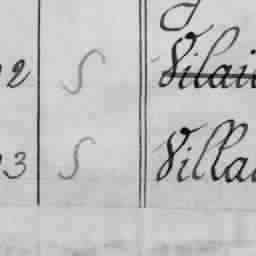 2 S Vilai
3 S Villa